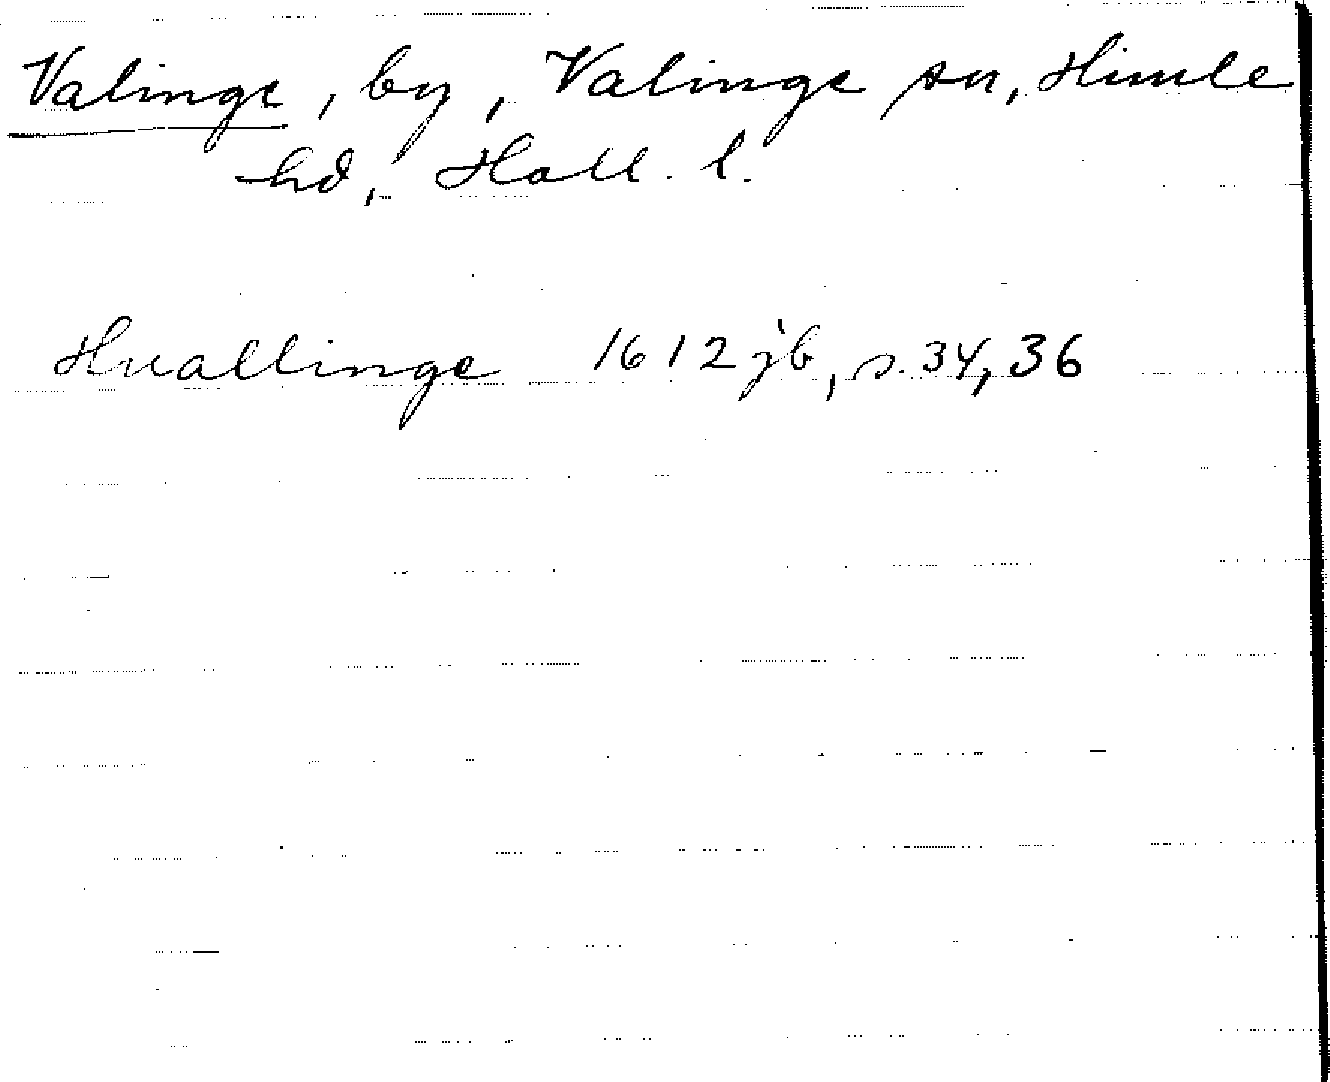 Valinge, by, Valinge sn, Himle
hd, Hall. l.
Huallinge 1612 jb, s. 34, 36